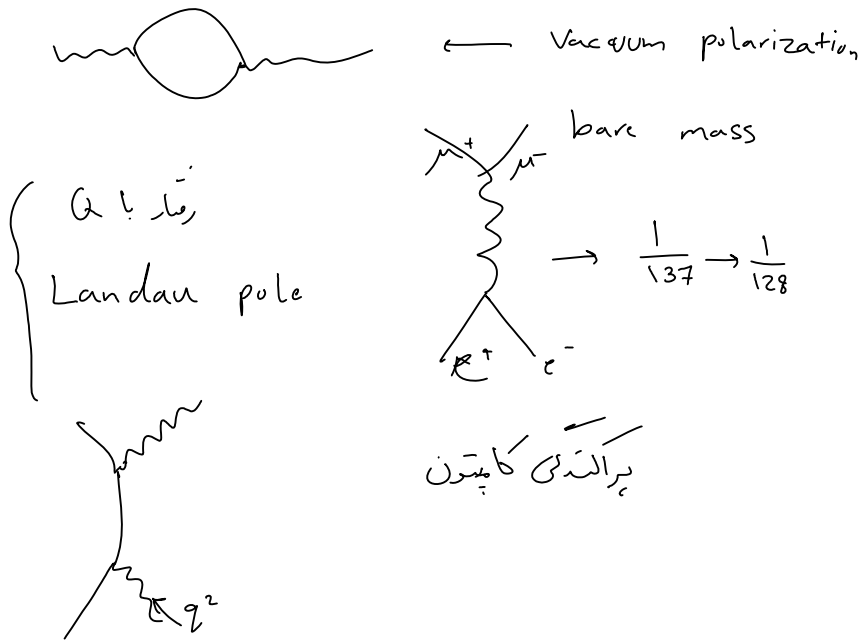 ← Vacuum polarization
bare mass
μ+ μ-
رفتار با Q
Landau pole
→ 1/137 → 1/128
e+ e-
پراکندگی کامپتون
q²